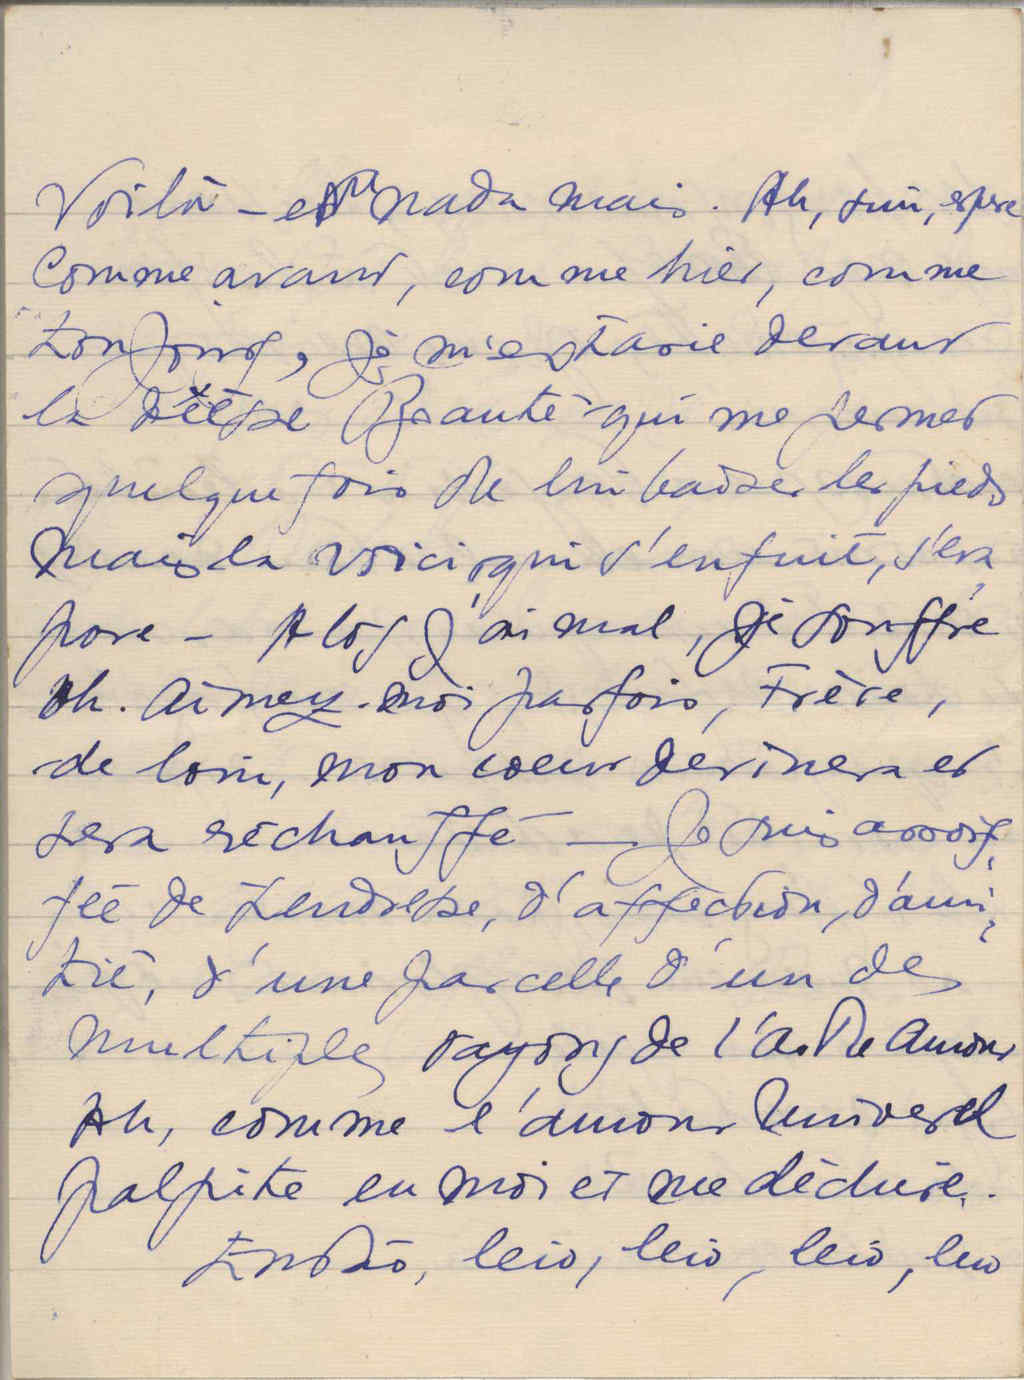 Voilà – e nada mais. Ah, sim, espere
Comme avant, comme hier, comme
toujours, je m'extasie devant
la déesse Beauté qui me permet
quelquefois de lui baiser les pieds
Mais la voici qui s'enfuit, s'éva
pore – Alors j'ai mal, je souffre
Oh. Aimez-moi parfois, Frère,
de loin, mon coeur devinera et
sera réchauffé –. Je suis assoif,
fée de tendresse, d'affection, d'ami,
tié, d'une parcelle d'un des
multiples rayons de l'Astre Amour
Ah, comme l'amour Universel
palpite en moi et me déchire.
Então, leio, leio, leio, leio